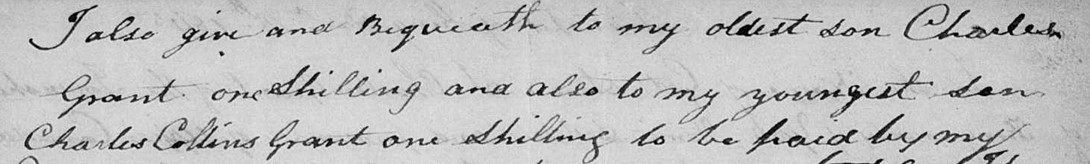 I also give and Bequeath to my oldest son Charles
Grant one Shilling and also to my youngest son
Charles Collins Grant one Shilling to be paid by my